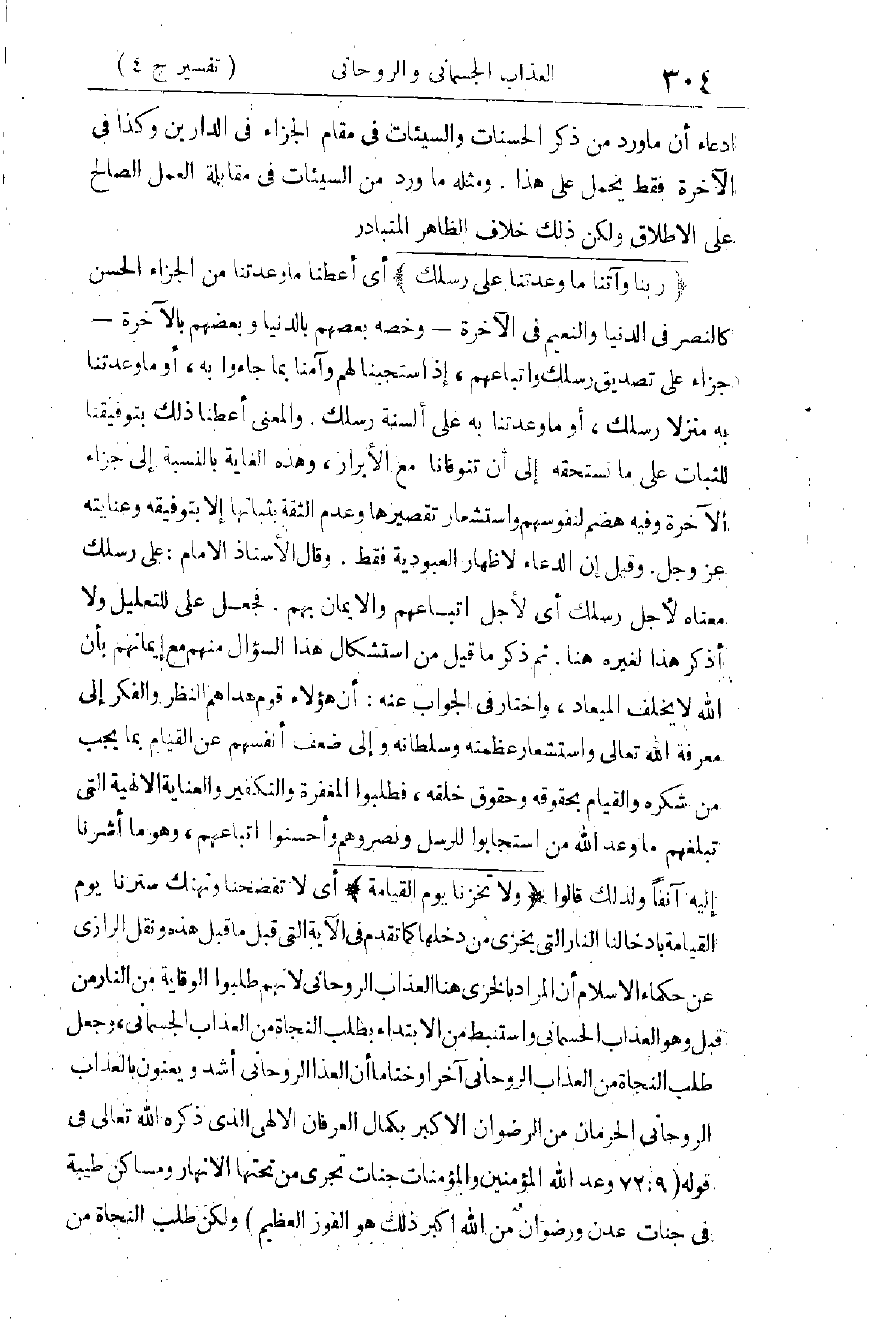 ٣٠٤ العذاب الجسمانى والروحانى ( تفسير ج ٤ )
ادعاء أن ماورد من ذكر الحسنات والسيئات فى مقام الجزاء فى الدارين وكذا فى
الآخرة فقط يحمل على هذا . ومثله ما ورد من السيئات فى مقابلة العمل الصالح
على الاطلاق ولكن ذلك خلاف الظاهر المتبادر
﴿ ربنا وآتنا ما وعدتنا على رسلك ﴾ أى أعطنا ماوعدتنا من الجزاء الحسن
كالنصر فى الدنيا والنعيم فى الآخرة — وخصه بعضهم بالدنيا وبعضهم بالآخرة —
جزاء على تصديق رسلك واتباعهم ، إذ استجبنا لهم وآمنا بما جاءوا به ، أو ماوعدتنا
به منزلا رسلك ، أو ماوعدتنا به على ألسنة رسلك . والمعنى أعطنا ذلك بتوفيقنا
للثبات على ما نستحقه إلى أن تتوفانا مع الأبرار ، وهذه الغاية بالنسبة إلى جزاء
الآخرة وفيه هضم لنفوسهم واستشعار تقصيرها وعدم الثقة بثباتها إلا بتوفيقه وعنايته
عز وجل . وقيل إن الدعاء لاظهار العبودية فقط . وقال الأستاذ الامام : على رسلك
معناه لأجل رسلك أى لأجل اتبـاعهم والايمان بهم . فجعـل على للتعليل ولا
أذكر هذا لغيره هنا . ثم ذكر ما قيل من استشكال هذا السؤال منهم مع إيمانهم بأن
الله لا يخلف الميعاد ، واختار فى الجواب عنه : أن هؤلاء قوم هداهم النظر والفكر إلى
معرفة الله تعالى واستشعار عظمته وسلطانه وإلى ضعف أنفسهم عن القيام بما يجب
من شكره والقيام بحقوقه وحقوق خلقه ، فطلبوا المغفرة والتكفير والعناية الالهية التى
تبلغهم ماوعد الله من استجابوا للرسل ونصروهم وأحسنوا اتباعهم ، وهو ما أشرنا
إليه آنفاً ولذلك قالوا ﴿ ولا تخزنا يوم القيامة ﴾ أى لا تفضحنا وتهتك سترنا يوم
القيامة بادخالنا النار التى يخزى من دخلها كما تقدم فى الآية التى قبل ماقبل هذه ونقل الرازى
عن حكماء الاسلام أن المراد بالخزى هنا العذاب الروحانى لأنهم طلبوا الوقاية من النار من
قبل وهو العذاب الجسمانى واستنبط من الابتداء بطلب النجاة من العذاب الجسمانى ، وجعل
طلب النجاة من العذاب الروحانى آخرا وختاما أن العذا الروحانى أشد ويعنون بالعذاب
الروحانى الحرمان من الرضوان الاكبر بكمال العرفان الالهى الذى ذكره الله تعالى فى
قوله ( ٩ : ٧٢ وعد الله المؤمنين والمؤمنات جنات تجرى من تحتها الانهار ومساكن طيبة
فى جنات عدن ورضوانٌ من الله اكبر ذلك هو الفوز العظيم ) ولكن طلب النجاة من